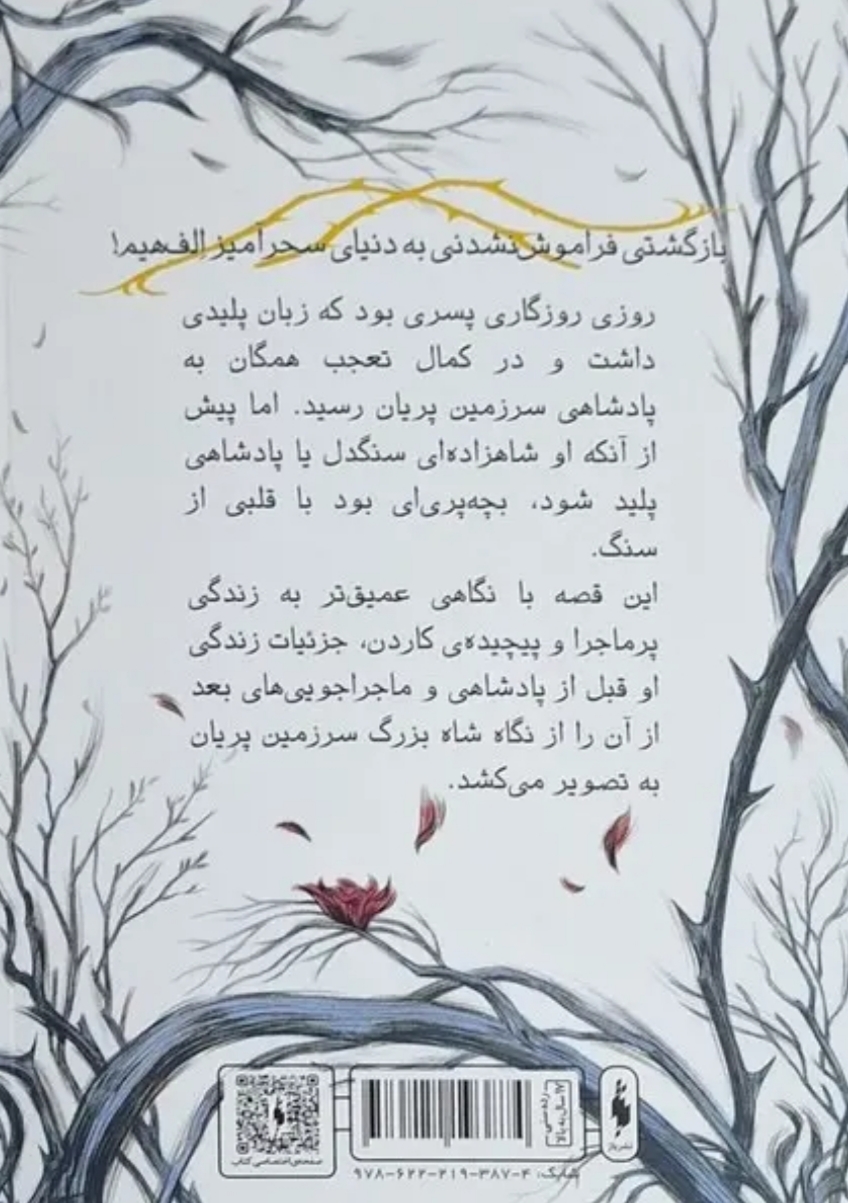 بازگشتی فراموش‌نشدنی به دنیای سحرآمیز الف‌هیم!
روزی روزگاری پسری بود که زبان پلیدی
داشت و در کمال تعجب همگان به
پادشاهی سرزمین پریان رسید. اما پیش
از آنکه او شاهزاده‌ای سنگدل یا پادشاهی
پلید شود، بچه‌پری‌ای بود با قلبی از
سنگ.
این قصه با نگاهی عمیق‌تر به زندگی
پرماجرا و پیچیده‌ی کاردن، جزئیات زندگی
او قبل از پادشاهی و ماجراجویی‌های بعد
از آن را از نگاه شاه بزرگ سرزمین پریان
به تصویر می‌کشد.
صفحه‌ی اختصاصی کتاب
رده‌سنی
۱۷ سال به بالا
نشر باژ
شابک: ۹۷۸-۶۲۲-۲۱۹-۳۸۷-۴